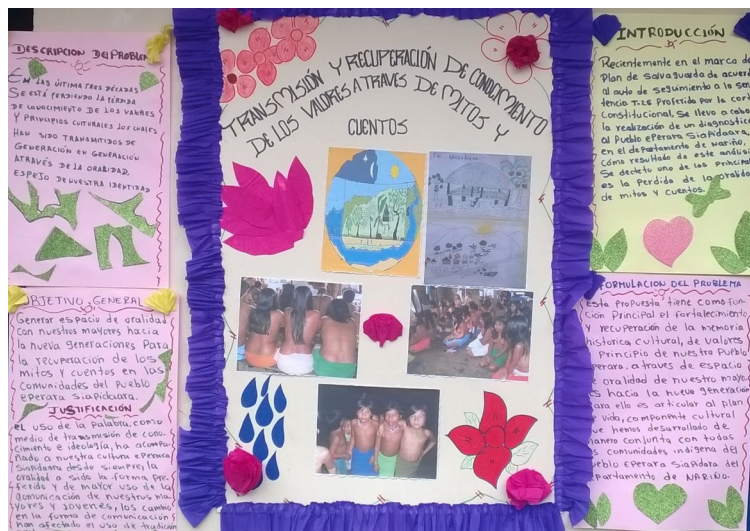 DESCRIPCION DEL PROBLEMA
EN LAS ÚLTIMA TRES DÉCADAS
SE ESTÁ PERDIENDO LA PÉRDIDA
DE CONOCIMIENTO DE LOS VALORES
Y PRINCIPIOS CULTURALES LOS CUALES
HAN SIDO TRANSMITIDOS DE
GENERACIÓN EN GENERACIÓN
ATRAVÉS DE LA ORALIDAD.
ESPEJO DE NUESTRA IDENTIDAD
OBJETIVO GENERAL
Generar espacio de oralidad
con nuestros mayores hacia
la nueva generaciones Para
la recuperación de los
mitos y cuentos en las
comunidades del Pueblo
eperara siapidaara.
JUSTIFICACIÓN
el uso de la Palabra, como
medio de transmisión de cono-
cimiento e ideología, ha acompa-
ñado a nuestra cultura eperara
Siapidaara desde siempre; la
oralidad a sido la forma pre-
ferida y de mayor uso de la
comunicación de nuestros ma-
yores y jovenes, los cambio
en la forma de comunicación
han afectado el uso de tradición
TRANSMISIÓN Y RECUPERACIÓN DE CONOCIMIENTO
DE LOS VALORES A TRAVES DE MITOS Y
CUENTOS
INTRODUCCIÓN
Recientemente en el marco de
Plan de Salvaguarda de acuer
al auto de seguimiento a la sen
tencia T-25 Proferida por la cort
Constitucional, Se llevo a cabo
la realización de un diagnostic
al Pueblo eperara Siapidaara
en el departamento de Nariño,
cómo resultado de este análisi
Se detecto uno de los princip
es la Perdida de la oralida
de mitos y cuentos.
FORMULACION DEL PROBLEMA
Esta Propuesta tiene como fun-
ción Principal el fortalecimiento
y recuperación de la memoria
historica, cultural, de valores
y Principio de nuestro Pueblo
eperara, a traves de espacio
de oralidad de nuestro mayo
es hacia la nueva generación
para ello es articular al plan
de vida, componente cultural
que hemos desarrollado de
manera conjunta con todas
s comunidades indígena del
Pueblo eperara Siapidara del
departamento de NARIÑO.